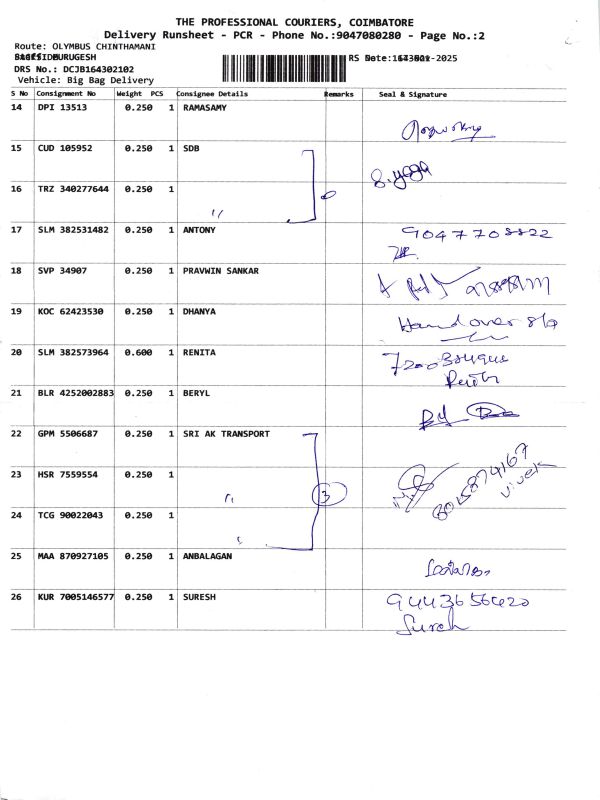 THE PROFESSIONAL COURIERS, COIMBATORE
Delivery Runsheet - PCR - Phone No.:9047080280 - Page No.:2
Route: OLYMBUS CHINTHAMANI
DRS No.: DCJB164302102
Vehicle: Big Bag Delivery
S No Consignment No Weight PCS Consignee Details Remarks Seal & Signature
14 DPI 13513 0.250 1 RAMASAMY
15 CUD 105952 0.250 1 SDB
16 TRZ 340277644 0.250 1
17 SLM 382531482 0.250 1 ANTONY 9047708822
18 SVP 34907 0.250 1 PRAVWIN SANKAR
19 KOC 62423530 0.250 1 DHANYA Handover
20 SLM 382573964 0.600 1 RENITA
21 BLR 4252002883 0.250 1 BERYL
22 GPM 5506687 0.250 1 SRI AK TRANSPORT
23 HSR 7559554 0.250 1 " 3
Vivek
24 TCG 90022043 0.250 1
25 MAA 870927105 0.250 1 ANBALAGAN
26 KUR 7005146577 0.250 1 SURESH 9443656420
Suresh